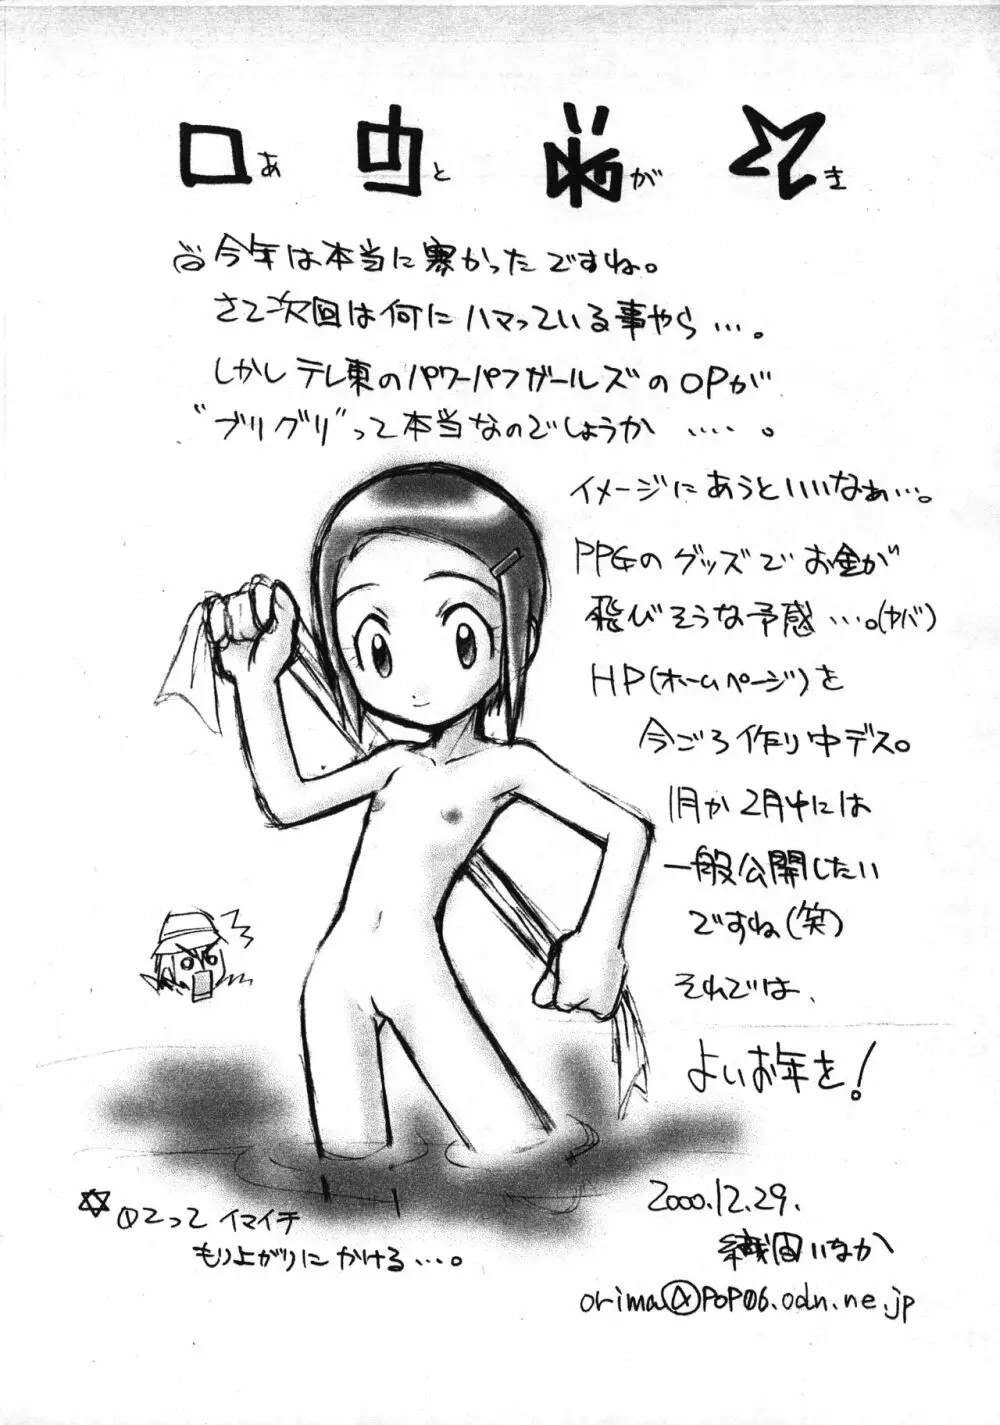 あとがき
今年は本当に寒かったですね。
さて次回は何にハマっている事やら…。
しかしテレ東のパワーパフガールズのOPが
"ブリグリ"って本当なのでしょうか ‥‥。
イメージにあうといいなぁ…。
PPGのグッズでお金が
飛びそうな予感…。(ヤバ)
HP(ホームページ)を
今ごろ作り中デス。
1月か2月中には
一般公開したい
ですね(笑)
それでは、
よいお年を!
2000.12.29.
織田いなか
orima@pop06.odn.ne.jp
って イマイチ
もり上がりに かける…。